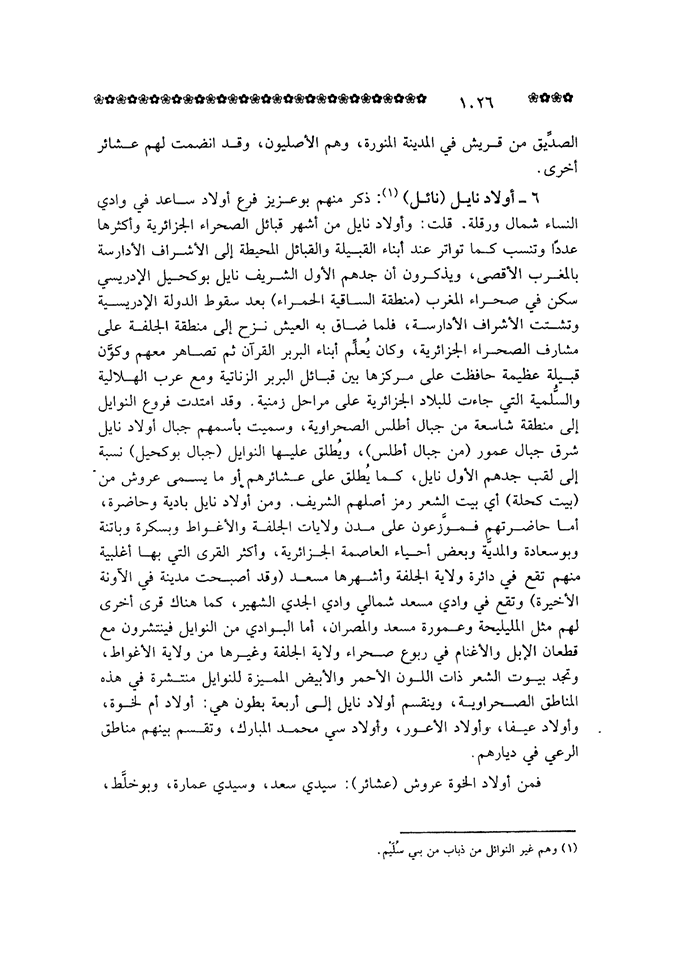 ١٠٢٦
الصدِّيق من قريش في المدينة المنورة، وهم الأصليون، وقد انضمت لهم عشائر
أخرى.
٦ ـ أولاد نايل (نائل) (١): ذكر منهم بوعزيز فرع أولاد ساعد في وادي
النساء شمال ورقلة. قلت: وأولاد نايل من أشهر قبائل الصحراء الجزائرية وأكثرها
عددًا وتنسب كما تواتر عند أبناء القبيلة والقبائل المحيطة إلى الأشراف الأدارسة
بالمغرب الأقصى، ويذكرون أن جدهم الأول الشريف نايل بوكحيل الإدريسي
سكن في صحراء المغرب (منطقة الساقية الحمراء) بعد سقوط الدولة الإدريسية
وتشتت الأشراف الأدارسة، فلما ضاق به العيش نزح إلى منطقة الجلفة على
مشارف الصحراء الجزائرية، وكان يُعلِّم أبناء البربر القرآن ثم تصاهر معهم وكوَّن
قبيلة عظيمة حافظت على مركزها بين قبائل البربر الزناتية ومع عرب الهلالية
والسُّلمية التي جاءت للبلاد الجزائرية على مراحل زمنية. وقد امتدت فروع النوايل
إلى منطقة شاسعة من جبال أطلس الصحراوية، وسميت بأسمهم جبال أولاد نايل
شرق جبال عمور (من جبال أطلس)، ويُطلق عليها النوايل (جبال بوكحيل) نسبة
إلى لقب جدهم الأول نايل، كما يُطلق على عشائرهم أو ما يسمى عروش من
(بيت كحلة) أي بيت الشعر رمز أصلهم الشريف. ومن أولاد نايل بادية وحاضرة،
أما حاضرتهم فموزَّعون على مدن ولايات الجلفة والأغواط وبسكرة وباتنة
وبوسعادة والمديَّة وبعض أحياء العاصمة الجزائرية، وأكثر القرى التي بها أغلبية
منهم تقع في دائرة ولاية الجلفة وأشهرها مسعد (وقد أصبحت مدينة في الآونة
الأخيرة) وتقع في وادي مسعد شمالي وادي الجدي الشهير، كما هناك قرى أخرى
لهم مثل المليليحة وعمورة مسعد والمصران، أما البوادي من النوايل فينتشرون مع
قطعان الإبل والأغنام في ربوع صحراء ولاية الجلفة وغيرها من ولاية الأغواط،
وتجد بيوت الشعر ذات اللون الأحمر والأبيض المميزة للنوايل منتشرة في هذه
المناطق الصحراوية، وينقسم أولاد نايل إلى أربعة بطون هي: أولاد أم لخوة،
وأولاد عيفا، وأولاد الأعور، وأولاد سي محمد المبارك، وتقسم بينهم مناطق
الرعي في ديارهم.
فمن أولاد الخوة عروش (عشائر): سيدي سعد، وسيدي عمارة، وبوخلَّط،
(١) وهم غير النوائل من ذباب من بني سُلَيْم.